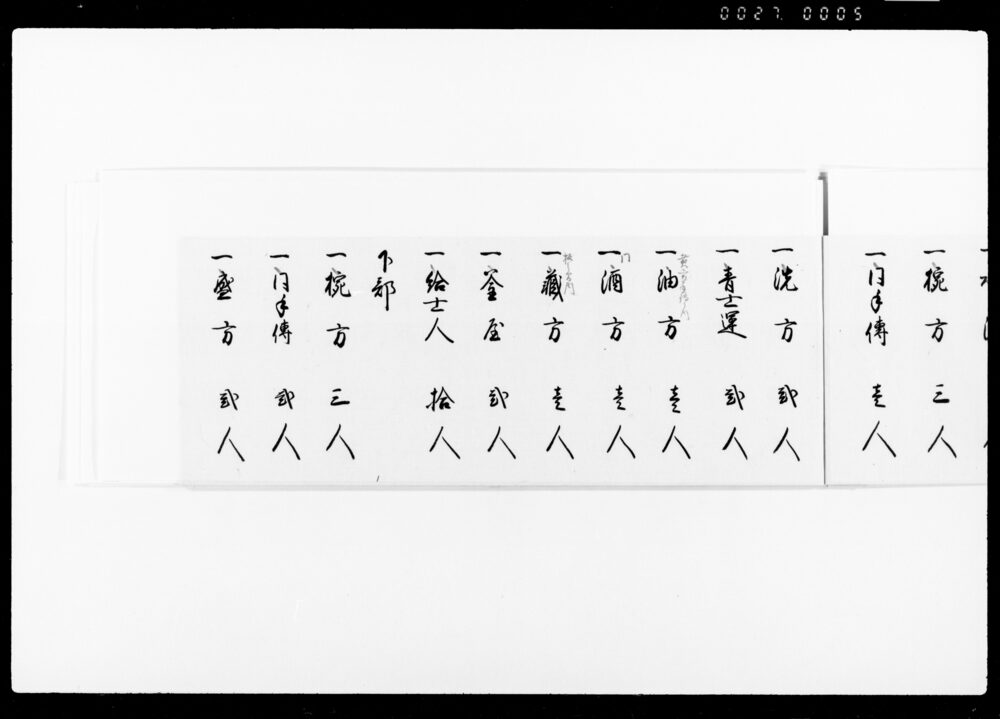 0027. 0005
一椀方 三人
一门手傳 壱人
一洗方 弐人
一青士運 弐人
一油方 壱人
一酒方 壱人
一藏方 壱人
一釜屋 弐人
一給士人 拾人
下部
一椀方 三人
一门手傳 弐人
一盛方 弐人